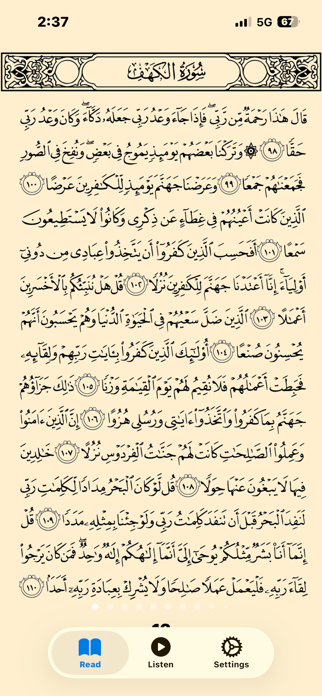 2:37
5G
67
سُورَةُ الكَهْفِ
قَالَ هَٰذَا رَحْمَةٌ مِّن رَّبِّي ۖ فَإِذَا جَاءَ وَعْدُ رَبِّي جَعَلَهُ دَكَّاءَ ۖ وَكَانَ وَعْدُ رَبِّي
حَقًّا ٩٨ ۞ وَتَرَكْنَا بَعْضَهُمْ يَوْمَئِذٍ يَمُوجُ فِي بَعْضٍ ۖ وَنُفِخَ فِي الصُّورِ
فَجَمَعْنَاهُمْ جَمْعًا ٩٩ وَعَرَضْنَا جَهَنَّمَ يَوْمَئِذٍ لِّلْكَافِرِينَ عَرْضًا ١٠٠
الَّذِينَ كَانَتْ أَعْيُنُهُمْ فِي غِطَاءٍ عَن ذِكْرِي وَكَانُوا لَا يَسْتَطِيعُونَ
سَمْعًا ١٠١ أَفَحَسِبَ الَّذِينَ كَفَرُوا أَن يَتَّخِذُوا عِبَادِي مِن دُونِي
أَوْلِيَاءَ ۚ إِنَّا أَعْتَدْنَا جَهَنَّمَ لِلْكَافِرِينَ نُزُلًا ١٠٢ قُلْ هَلْ نُنَبِّئُكُم بِالْأَخْسَرِينَ
أَعْمَالًا ١٠٣ الَّذِينَ ضَلَّ سَعْيُهُمْ فِي الْحَيَاةِ الدُّنْيَا وَهُمْ يَحْسَبُونَ أَنَّهُمْ
يُحْسِنُونَ صُنْعًا ١٠٤ أُولَٰئِكَ الَّذِينَ كَفَرُوا بِآيَاتِ رَبِّهِمْ وَلِقَائِهِ
فَحَبِطَتْ أَعْمَالُهُمْ فَلَا نُقِيمُ لَهُمْ يَوْمَ الْقِيَامَةِ وَزْنًا ١٠٥ ذَٰلِكَ جَزَاؤُهُمْ
جَهَنَّمُ بِمَا كَفَرُوا وَاتَّخَذُوا آيَاتِي وَرُسُلِي هُزُوًا ١٠٦ إِنَّ الَّذِينَ آمَنُوا
وَعَمِلُوا الصَّالِحَاتِ كَانَتْ لَهُمْ جَنَّاتُ الْفِرْدَوْسِ نُزُلًا ١٠٧ خَالِدِينَ
فِيهَا لَا يَبْغُونَ عَنْهَا حِوَلًا ١٠٨ قُل لَّوْ كَانَ الْبَحْرُ مِدَادًا لِّكَلِمَاتِ رَبِّي
لَنَفِدَ الْبَحْرُ قَبْلَ أَن تَنفَدَ كَلِمَاتُ رَبِّي وَلَوْ جِئْنَا بِمِثْلِهِ مَدَدًا ١٠٩ قُلْ
إِنَّمَا أَنَا بَشَرٌ مِّثْلُكُمْ يُوحَىٰ إِلَيَّ أَنَّمَا إِلَٰهُكُمْ إِلَٰهٌ وَاحِدٌ ۖ فَمَن كَانَ يَرْجُو
لِقَاءَ رَبِّهِ فَلْيَعْمَلْ عَمَلًا صَالِحًا وَلَا يُشْرِكْ بِعِبَادَةِ رَبِّهِ أَحَدًا ١١٠
Read Listen Settings